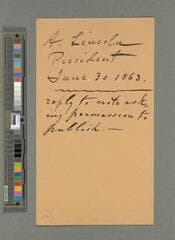 A. Lincoln
President
June 30. 1863.
reply to note ask
ing permission to
publish.—